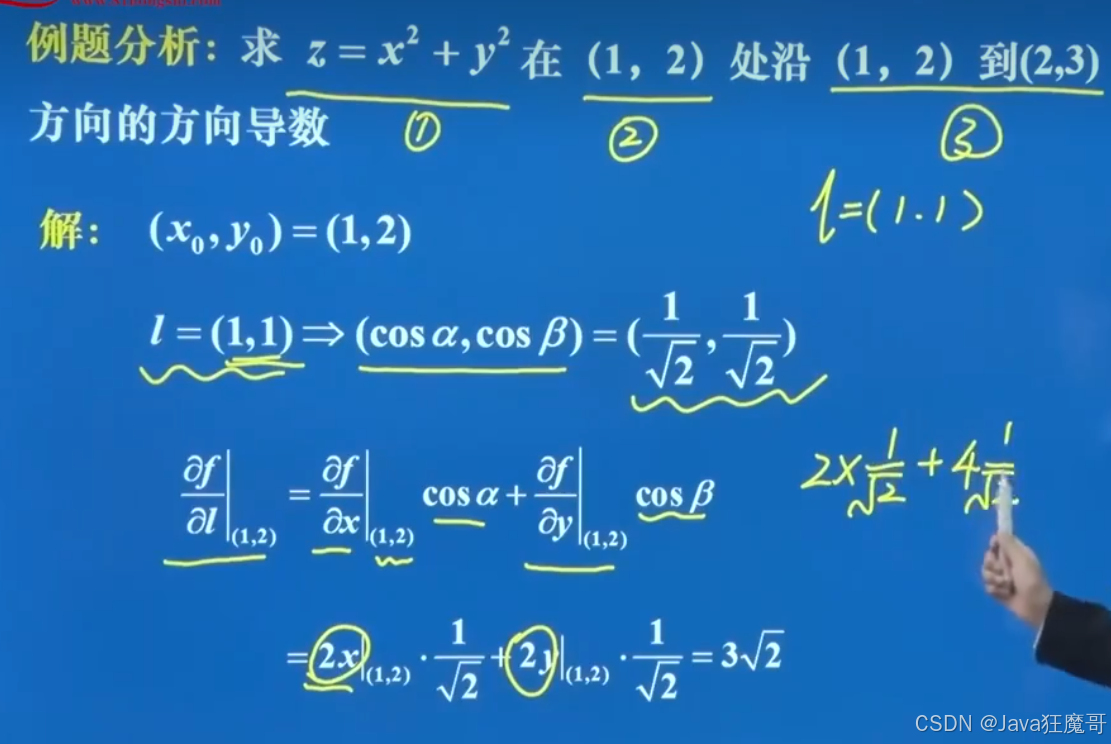 例题分析：求 z = x² + y² 在（1，2）处沿（1，2）到(2,3)
① ② ③
方向的方向导数
l=(1.1)
解： (x₀, y₀) = (1,2)
l = (1,1) ⇒ (cos α, cos β) = (1/√2, 1/√2)
∂f/∂l|(1,2) = ∂f/∂x|(1,2) cos α + ∂f/∂y|(1,2) cos β
2×1/√2 + 4 1/√2
= 2x|(1,2) · 1/√2 + 2y|(1,2) · 1/√2 = 3√2
CSDN @Java狂魔哥